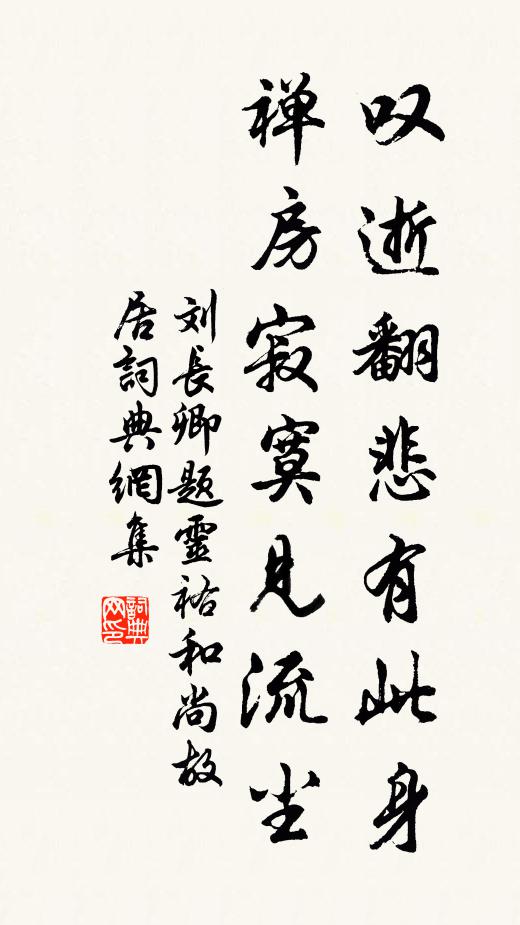 叹逝翻悲有此身
禅房寂寞见流尘
刘長卿题靈祐和尚故
居詞典網集
詞典
网印